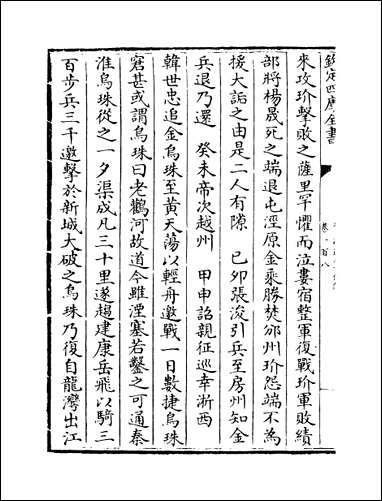 欽定四庫全書
來攻玠擊敗之薩里罕懼而泣婁宿整軍復戰玠軍敗績
部將楊晟死之端退屯涇原金乘勝焚邠州玠怨端不為
援大詬之由是二人有隙　己卯張浚引兵至房州知金
兵退乃還　癸未帝次越州　甲申詔親征巡幸浙西
韓世忠追金烏珠至黃天蕩以輕舟邀戰一日數捷烏珠
窘甚或謂烏珠曰老鸛河故道今雖湮塞若鑿之可通秦
淮烏珠從之一夕渠成凡三十里遂趨建康岳飛以騎三
百步兵三千邀擊於新城大破之烏珠乃復自龍灣出江